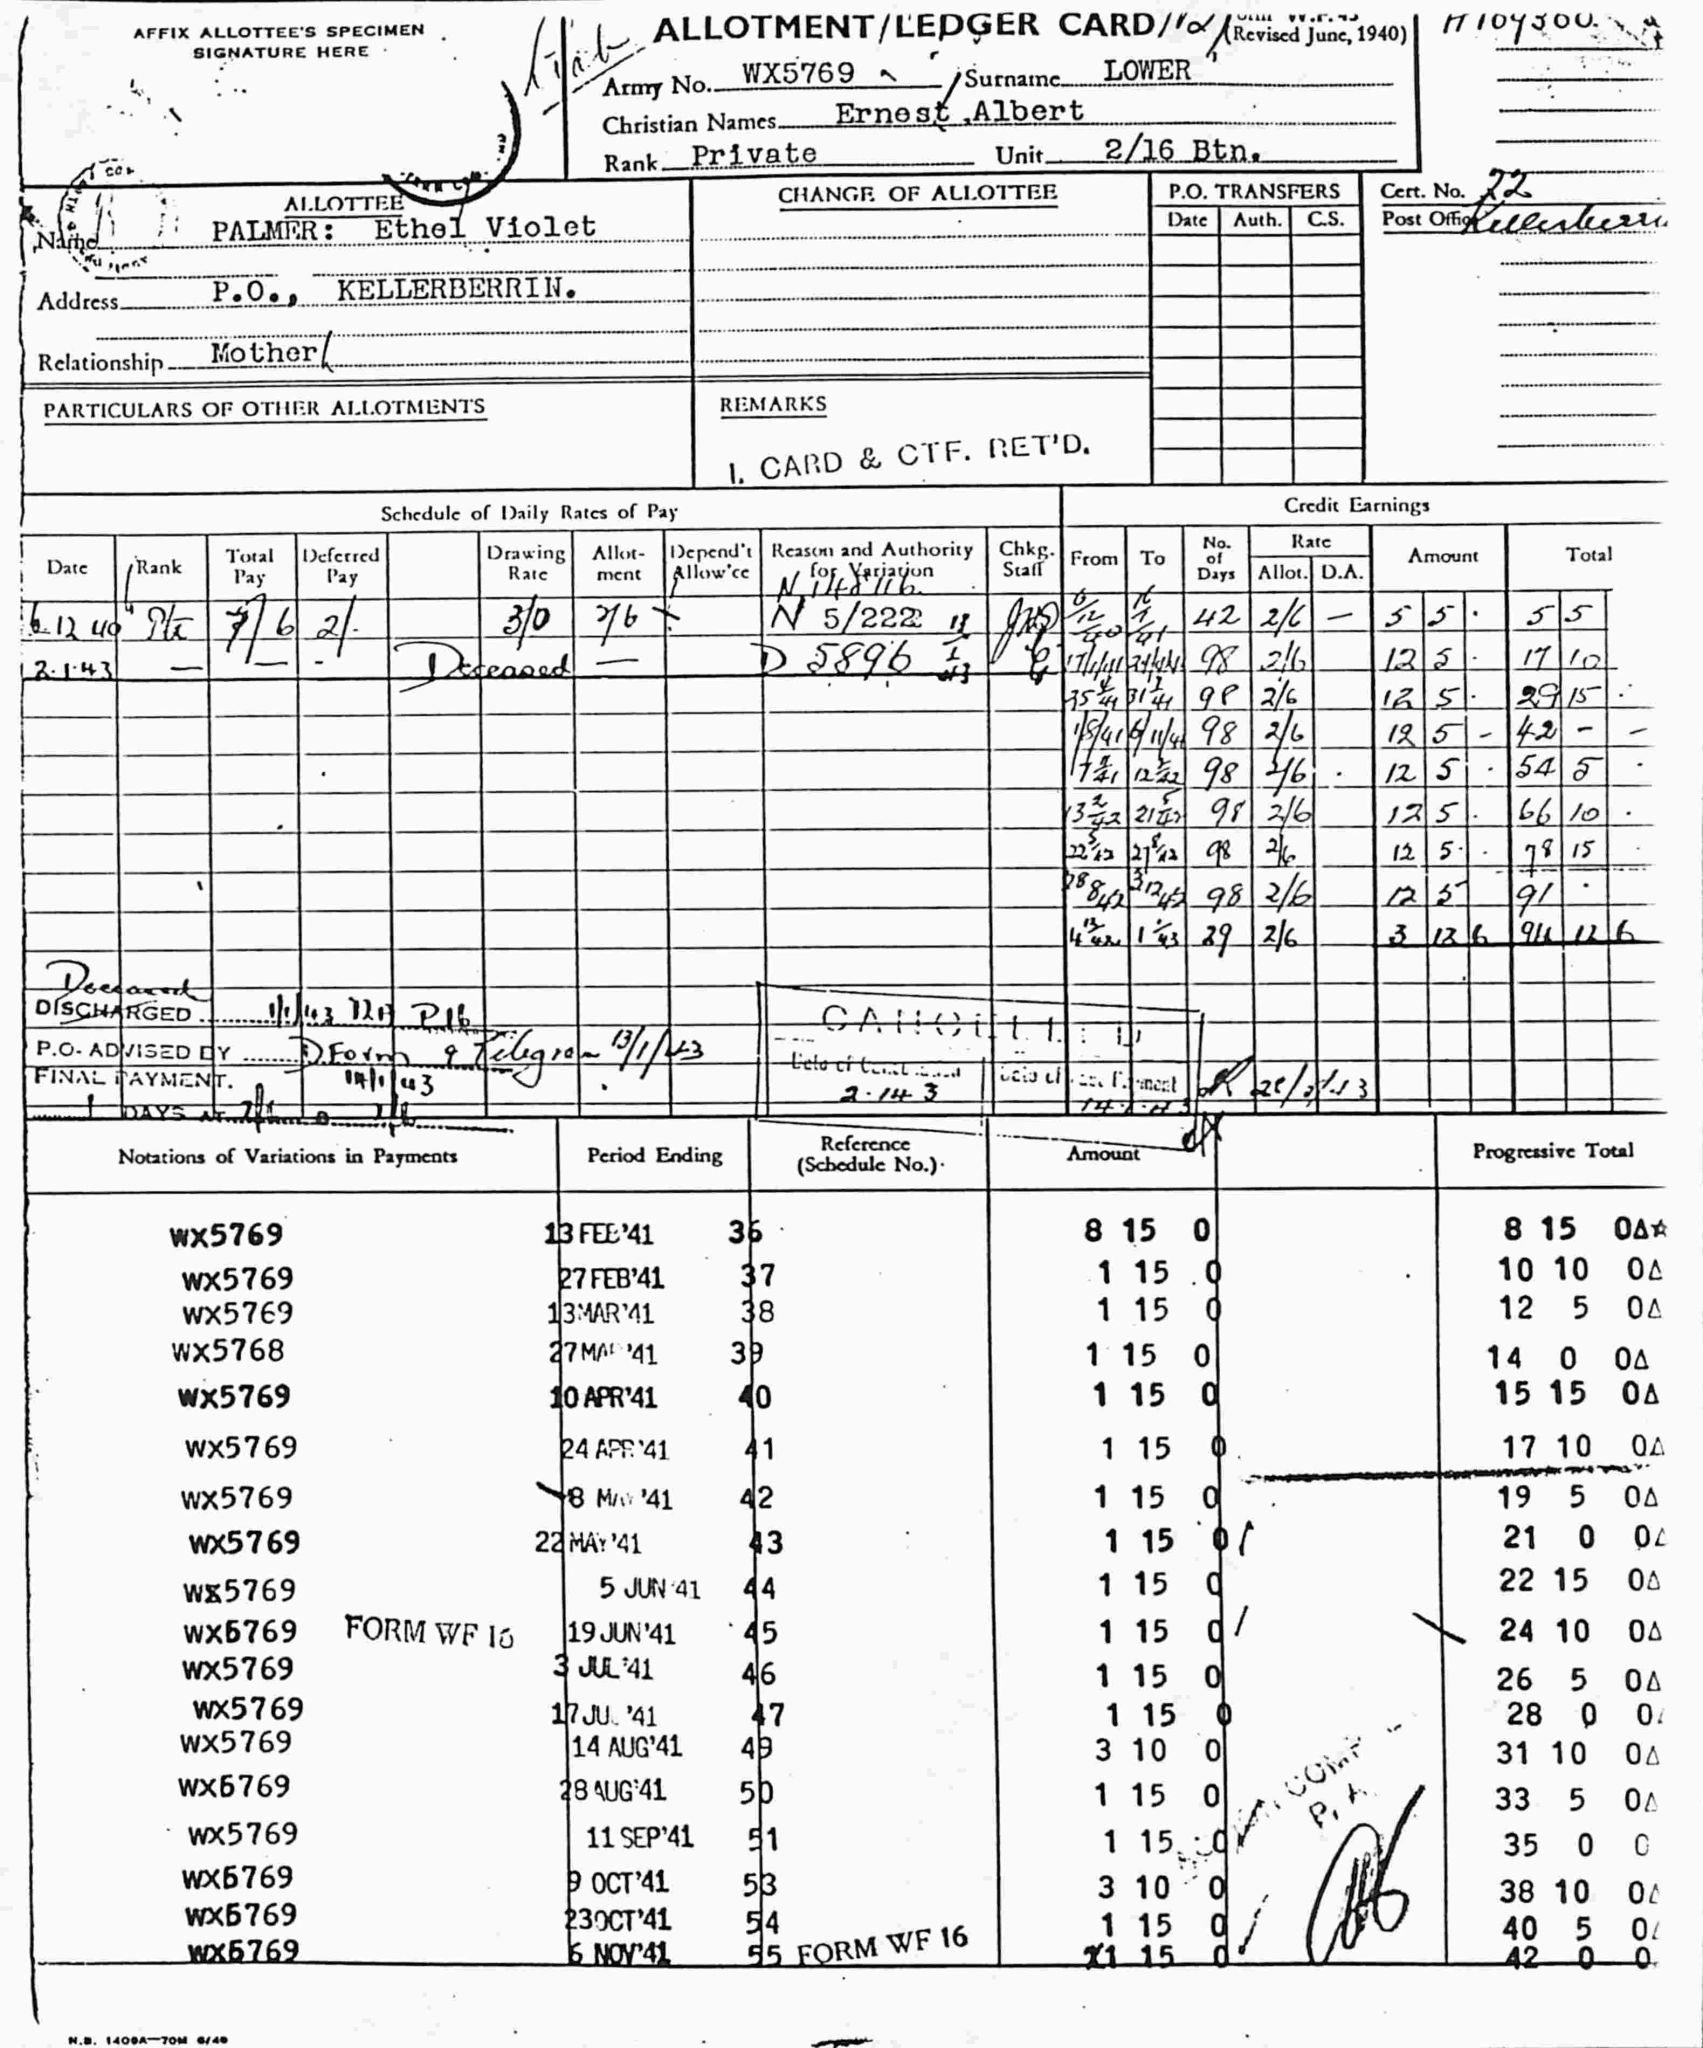 AFFIX ALLOTTEE'S SPECIMEN
SIGNATURE HERE
ALLOTMENT/LEDGER CARD
(Revised June, 1940)
Army No. WX5769 Surname LOWER
Christian Names Ernest Albert
Rank Private Unit 2/16 Btn.
ALLOTTEE
Name PALMER: Ethel Violet
Address P.O., KELLERBERRIN.
Relationship Mother
CHANGE OF ALLOTTEE
P.O. TRANSFERS
Date Auth. C.S.
Cert. No. 22
Post Office Kellerberrin
PARTICULARS OF OTHER ALLOTMENTS
REMARKS
1. CARD & CTF. RET'D.
Schedule of Daily Rates of Pay
Credit Earnings
Date Rank Total Pay Deferred Pay Drawing Rate Allot-ment Depend't Allow'ce Reason and Authority for Variation Chkg. Staff From To No. of Days Rate Allot. D.A. Amount Total
N 148116
6 12 40 Pte 7/6 2/- 3/0 2/6 N 5/222 6/12/40 16/1/41 42 2/6 — 5 5 5 5
2.1.43 — — - Deceased — D 5896 17/1/41 24/4/41 98 2/6 12 5 17 10
25/4/41 31/7/41 98 2/6 12 5 29 15
1/8/41 6/11/41 98 2/6 12 5 - 42 - -
7/11/41 12/2/42 98 2/6 12 5 54 5
13/2/42 21/5/42 98 2/6 12 5 66 10
22/5/42 27/8/42 98 2/6 12 5 78 15
28/8/42 3/12/42 98 2/6 12 5 91
4/12/42 1/1/43 29 2/6 3 12 6 94 12 6
Deceased
DISCHARGED 1/1/43 P16
P.O. ADVISED BY D.Form & Telegram 13/1/43
FINAL PAYMENT. 14/1/43
1 DAYS AT 2/6 2/6
CANCELLED
Date of 2.1.43 Date of Payment
Notations of Variations in Payments Period Ending Reference (Schedule No.) Amount Progressive Total
WX5769 13 FEB'41 36 8 15 0 8 15 0Δ☆
WX5769 27 FEB'41 37 1 15 0 10 10 0Δ
WX5769 13 MAR'41 38 1 15 0 12 5 0Δ
WX5768 27 MAR'41 39 1 15 0 14 0 0Δ
WX5769 10 APR'41 40 1 15 0 15 15 0Δ
WX5769 24 APR'41 41 1 15 0 17 10 0Δ
WX5769 8 MAY'41 42 1 15 0 19 5 0Δ
WX5769 22 MAY'41 43 1 15 0 21 0 0Δ
WX5769 5 JUN'41 44 1 15 0 22 15 0Δ
WX5769 FORM WF 16 19 JUN'41 45 1 15 0 24 10 0Δ
WX5769 3 JUL'41 46 1 15 0 26 5 0Δ
WX5769 17 JUL'41 47 1 15 0 28 0 0
WX5769 14 AUG'41 49 3 10 0 31 10 0Δ
WX5769 28 AUG'41 50 1 15 0 33 5 0Δ
WX5769 11 SEP'41 51 1 15 0 35 0 0
WX5769 9 OCT'41 53 3 10 0 38 10 0Δ
WX5769 23 OCT'41 54 1 15 0 40 5 0
WX5769 6 NOV'41 55 FORM WF 16 1 15 0 42 0 0
COMP P.A.
N.B. 1409A—70M 6/40